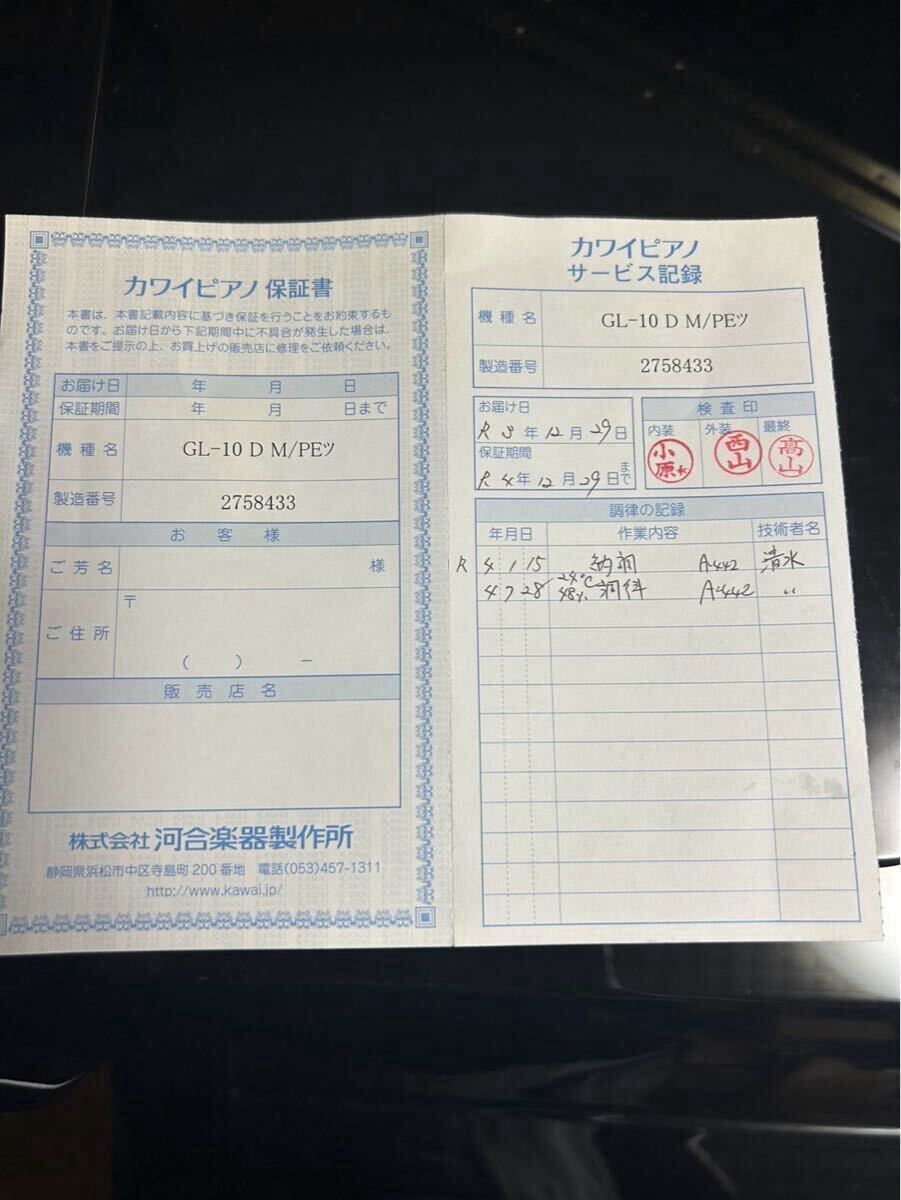 カワイピアノ 保証書
本書は、本書記載内容に基づき保証を行うことをお約束するも
のです。お届け日から下記期間中に不具合が発生した場合は、
本書をご提示の上、お買上げの販売店に修理をご依頼ください。
お届け日 年 月 日
保証期間 年 月 日まで
機種名 GL-10 D M/PEツ
製造番号 2758433
お客様
ご芳名 様
ご住所 〒
( ) −
販売店名
株式会社 河合楽器製作所
静岡県浜松市中区寺島町200番地 電話(053)457-1311
http://www.kawai.jp/
カワイピアノ
サービス記録
機種名 GL-10 D M/PEツ
製造番号 2758433
お届け日
R 3年 12月 29日
保証期間
R 4年 12月 29日まで
検査印
内装 外装 最終
小原 西山 高山
調律の記録
年月日 作業内容 技術者名
R 4 1 15 納調 A442 清水
4 7 28 24℃ 48% 調律 A442 〃